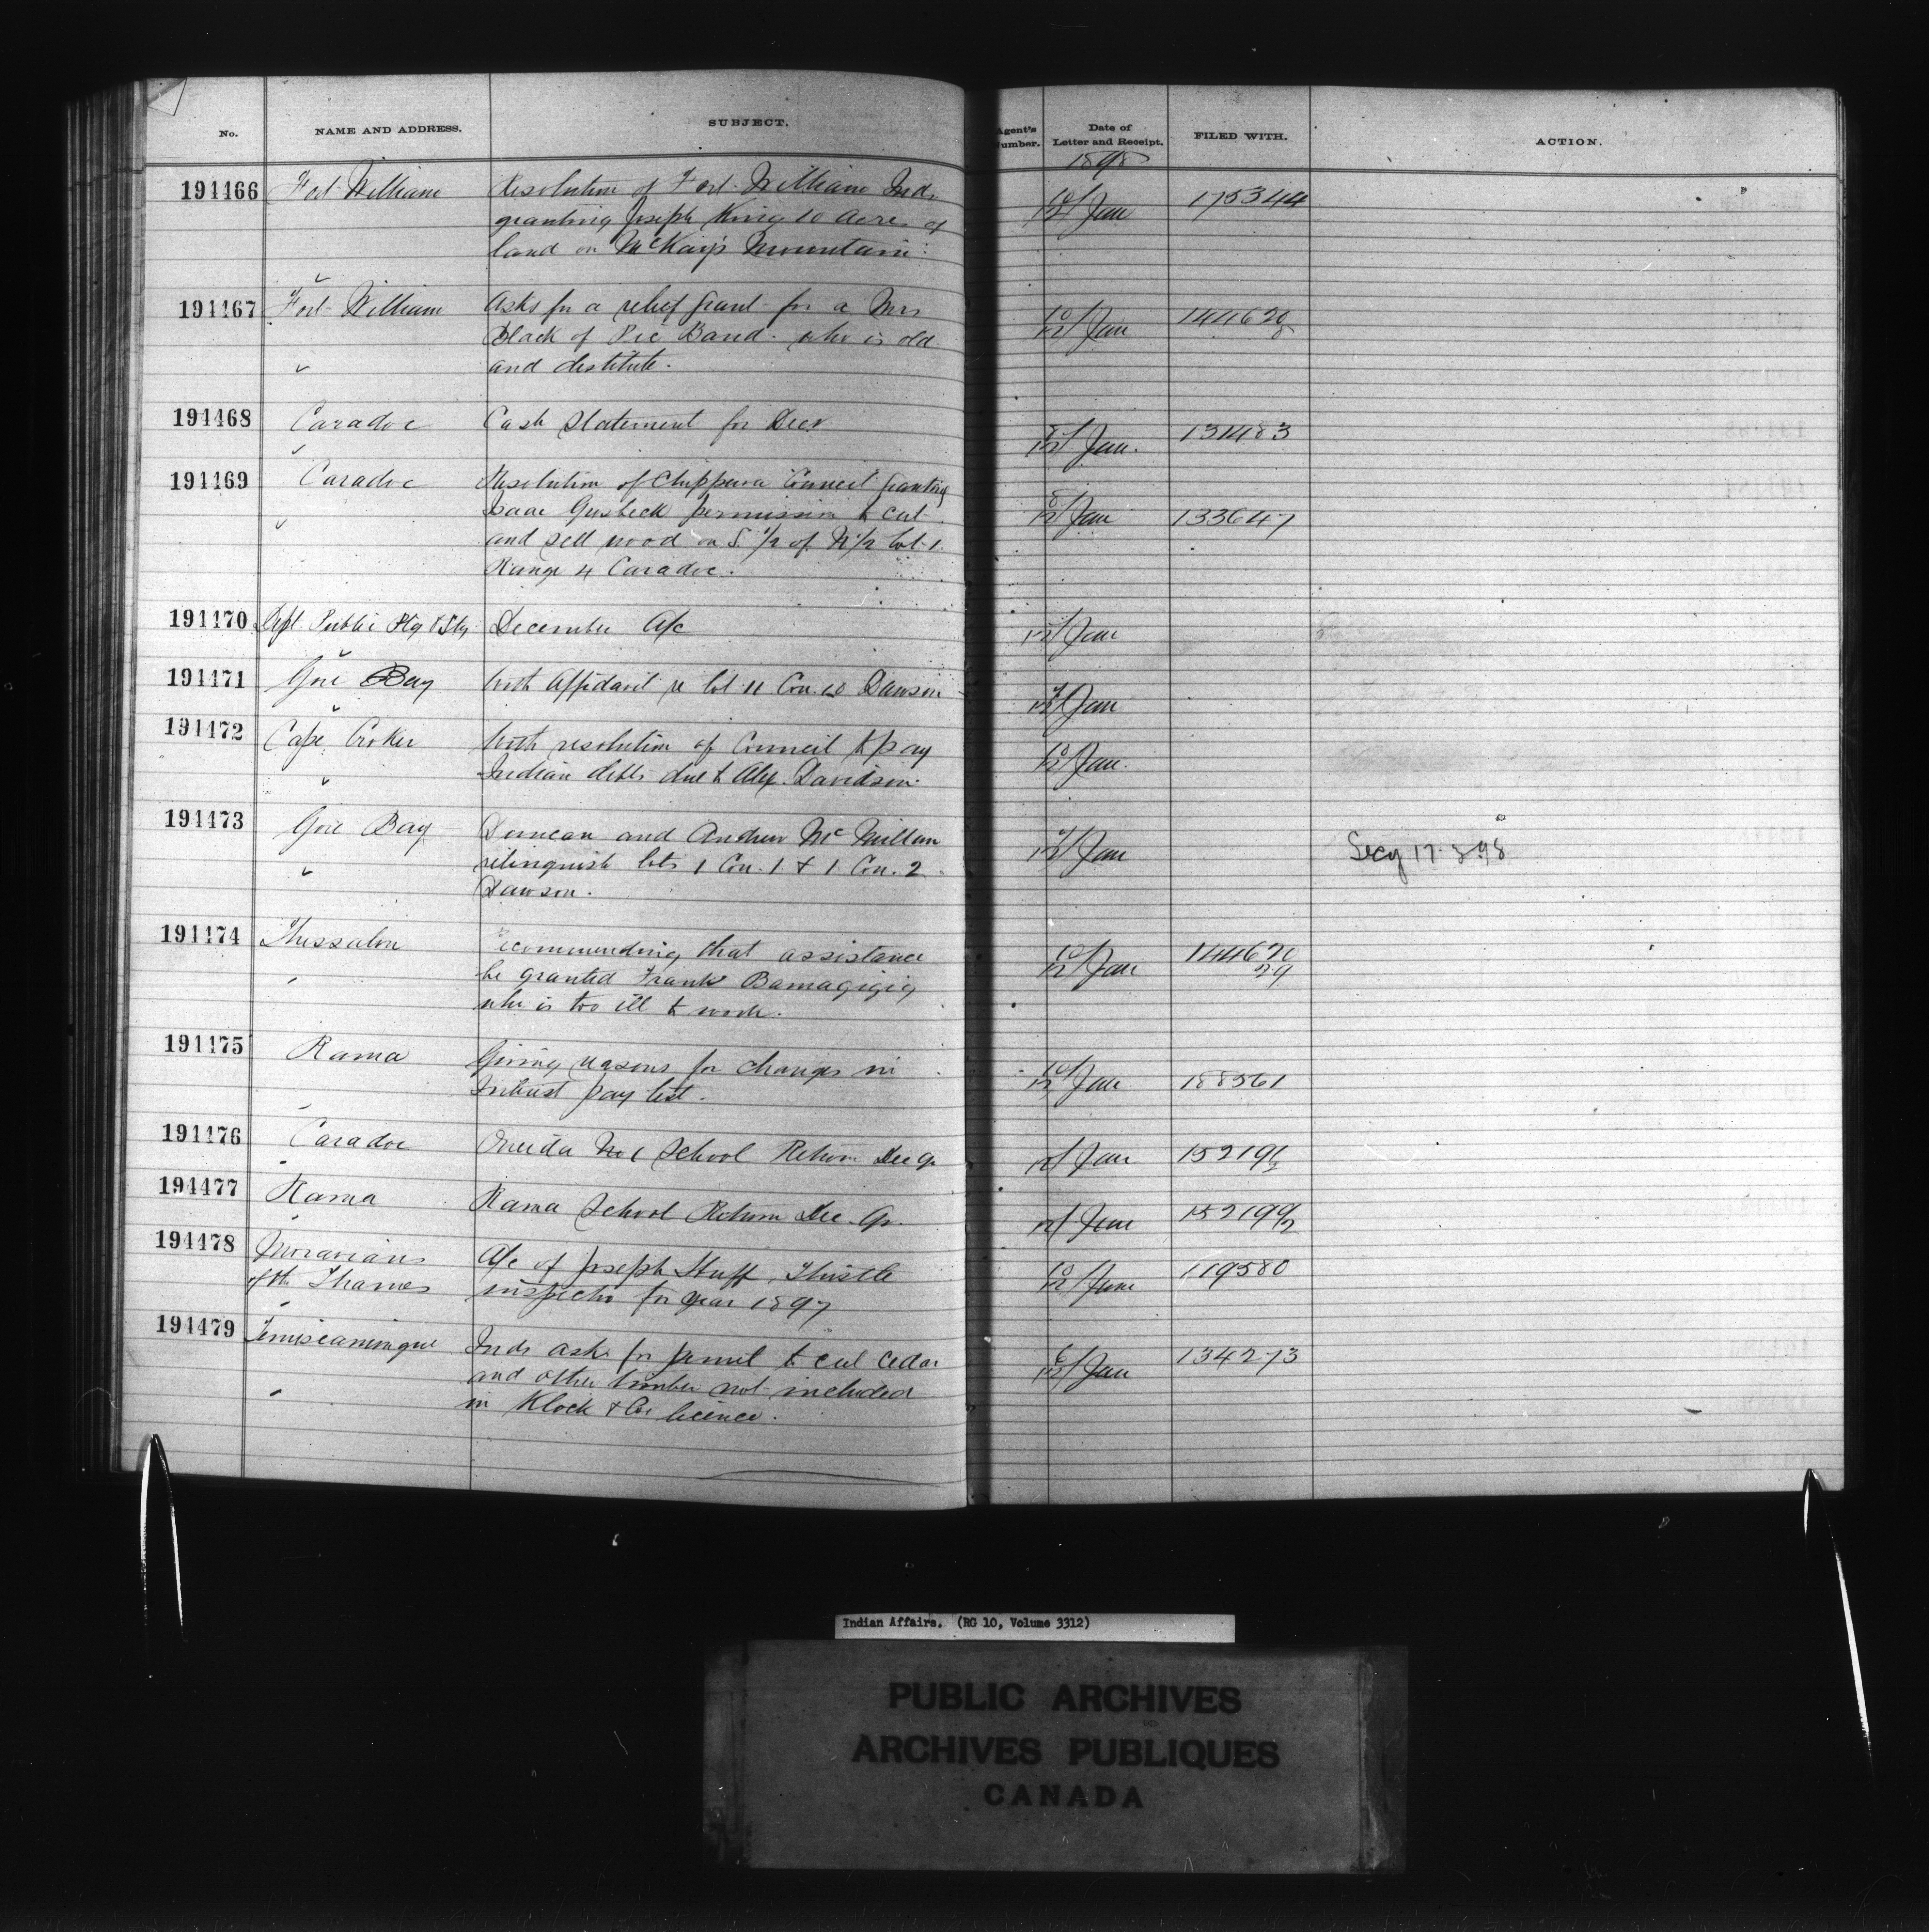 No. NAME AND ADDRESS. SUBJECT. Agent's Number. Date of Letter and Receipt. FILED WITH. ACTION.
1898
194466 Fort William Resolution of Fort William Inds 10/12 Jan 175344
granting Joseph King 10 acres of
land on McKay's Mountain
194467 Fort William Asks for a relief grant for a Mrs 10/12 Jan 144620
Black of Pic Band who is old 8
and destitute.
194468 Caradoc Cash Statement for Decr 8/12 Jan. 131483
194469 Caradoc Resolution of Chippewa Council granting
Isaac permission to cut 8/12 Jan 133647
and sell wood on S. 1/2 of N 1/2 lot 1
Range 4 Caradoc.
194470 Dept Public Ptg & Sty December A/c 12/Jan
194471 Gore Bay With Affidavit re lot 11 Con. 10 Dawson Jan
194472 Cape Croker With resolution of Council to pay 10/12 Jan.
Indian debts due to Alex. Davidson
194473 Gore Bay Duncan and Andrew McMillan Jan Secy 17-3-98
relinquish lots 1 Con. 1 & 1 Con. 2
Dawson.
194474 Thessalon Recommending that assistance 10/12 Jan 144620
be granted Frank Bamagigig 29
who is too ill to work.
194475 Rama Giving reasons for changes in 10/12 Jan 188561
Interest pay list.
194476 Caradoc Oneida No 1 School Return Dec Qr 12/Jan 152191
2
194477 Rama Rama School Return Dec. Qr. 12/Jan 152199/2
194478 Moravians A/c of Joseph Huff, Thistle 10/12 Jan 119580
of the Thames inspector for year 1897
194479 Temiscamingue Inds ask for permit to cut cedar 6/12 Jan 134273
and other timber not included
in Klock & Co. licence.
Indian Affairs. (RG 10, Volume 3312)
PUBLIC ARCHIVES
ARCHIVES PUBLIQUES
CANADA